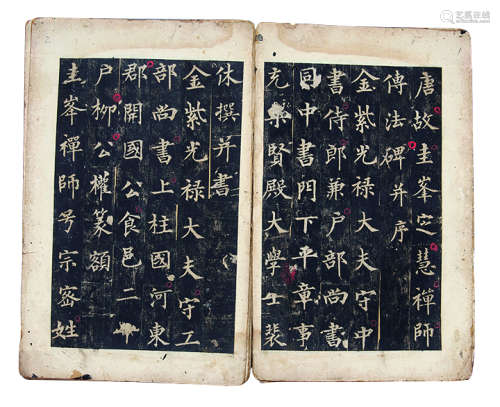 唐故圭峯定慧禪師
傳法碑并序
金紫光禄大夫守中
書侍郎兼户部尚書
同中書門下平章事
充集賢殿大學士裴
休撰并書
金紫光禄大夫守工
部尚書上柱國河東
郡開國公食邑二千
户柳公權篆額
圭峯禪師号宗密姓
艺狐在线